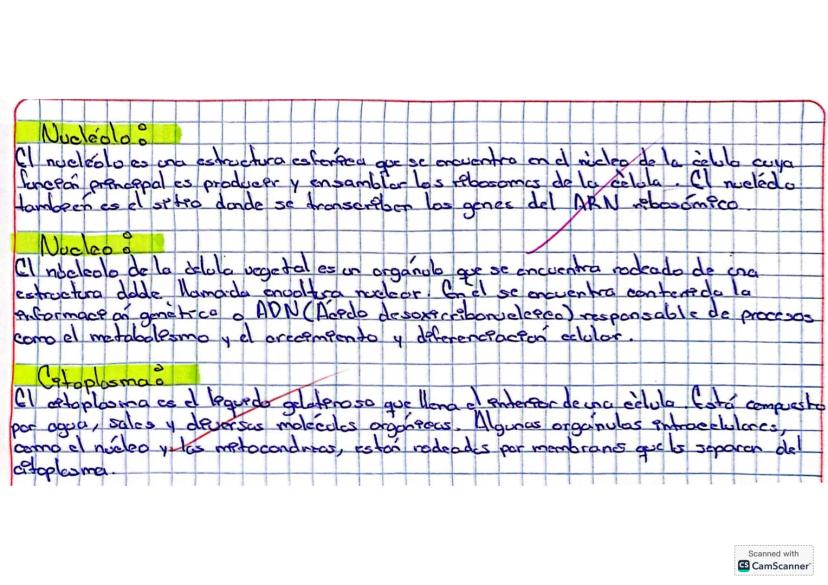 Nucléolo:
El nucleólo es una estructura esférica que se encuentra en el núcleo de la célula cuya
función principal es producir y ensamblar los ribosomas de la célula. El nucléolo
también es el sitio donde se transcriben los genes del ARN ribosómico.
Nucleo:
El núcleolo de la célula vegetal es un orgánulo que se encuentra rodeado de una
estructura doble llamada envoltura nuclear. En él se encuentra contenida la
información genética o ADN (Ácido desoxirribonucleico) responsable de procesos
como el metabolismo y el crecimiento y diferenciación celular.
Citoplasma:
El citoplasma es el líquido gelatinoso que llena el interior de una célula. Está compuesto
por agua, sales y diversas moléculas orgánicas. Algunos orgánulos intracelulares,
como el núcleo y las mitocondrias, están rodeados por membranas que los separan del
citoplasma.
Scanned with
CS CamScanner